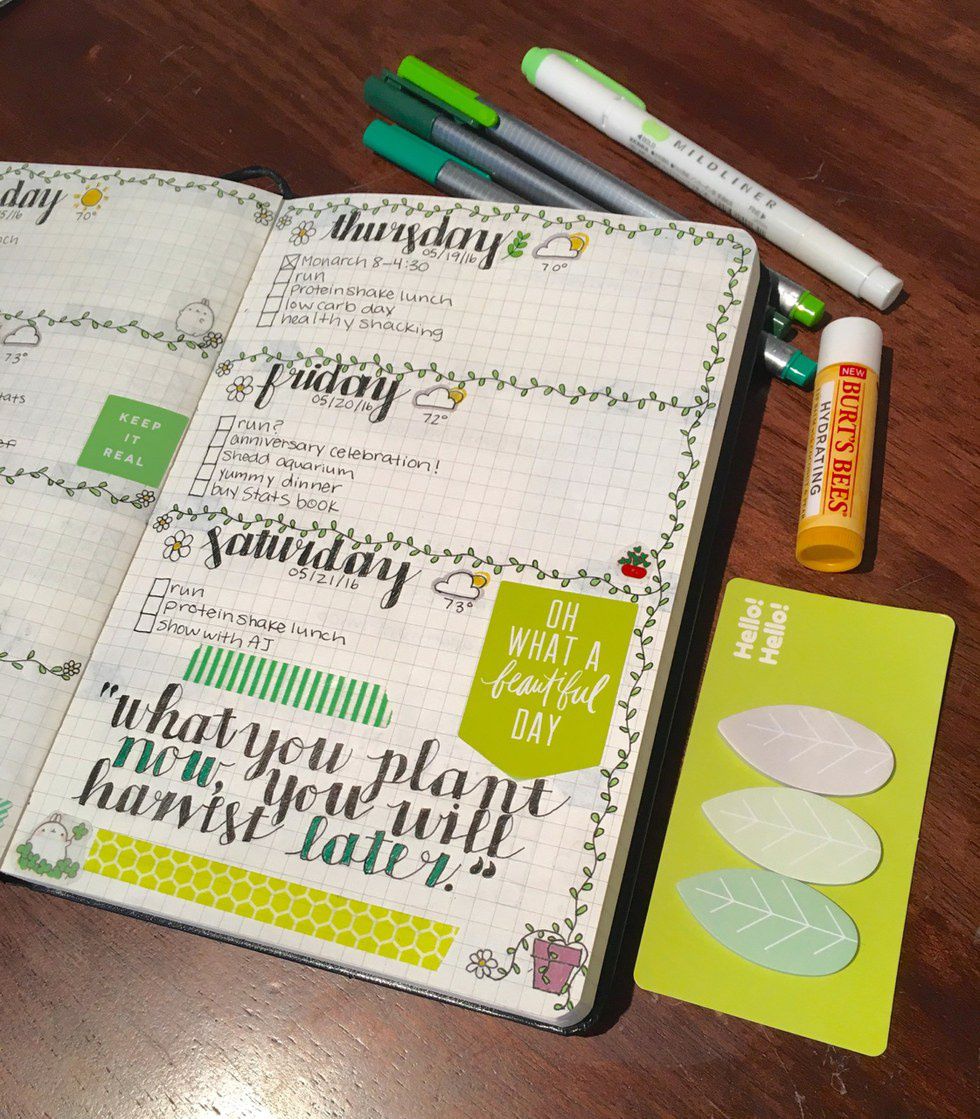 day
70°
73°
KEEP
IT
REAL
thursday
05/19/16
70°
Monarch 8-4:30
run
protein shake lunch
low carb day
healthy snacking
friday
05/20/16
72°
run?
anniversary celebration!
shedd aquarium
yummy dinner
buy stats book
saturday
05/21/16
73°
run
protein shake lunch
show with AJ
OH
WHAT A
beautiful
DAY
"what you plant
now, you will
harvest later."
MILDLINER
NEW
BURT'S BEES
HYDRATING
Hello!
Hello!